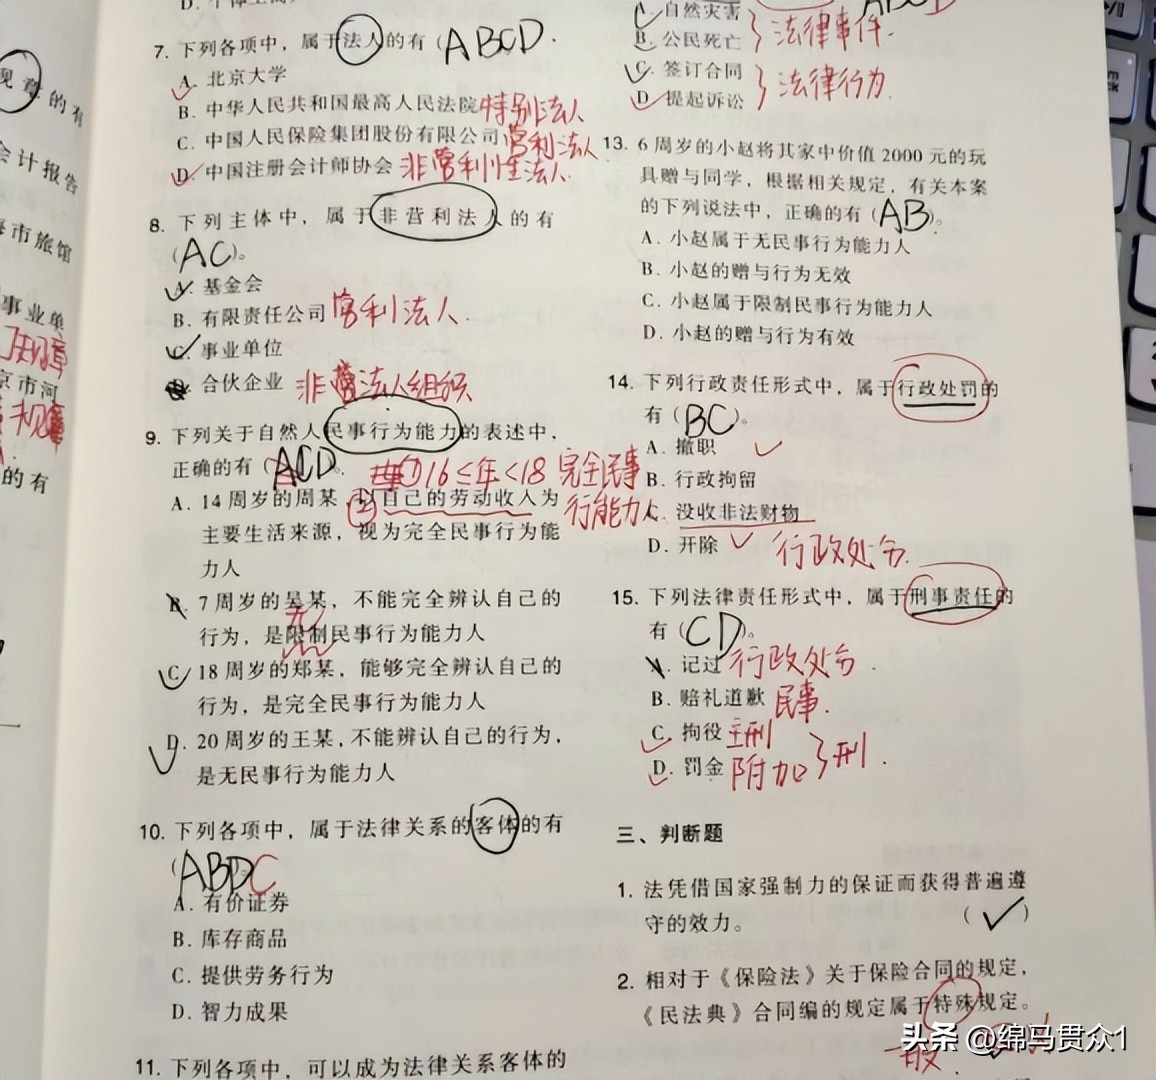 7. 下列各项中，属于法人的有（ABCD.
A. 北京大学
B. 中华人民共和国最高人民法院 特别法人
C. 中国人民保险集团股份有限公司 营利法人
D. 中国注册会计师协会 非营利性法人.
8. 下列主体中，属于非营利法人的有
（AC）。
A. 基金会
B. 有限责任公司 营利法人.
C. 事业单位
D. 合伙企业 非营法人组织
9. 下列关于自然人民事行为能力的表述中，
正确的有（ACD）。 ①16≤年<18 完全民事
A. 14周岁的周某，②以自己的劳动收入为 行能力人
主要生活来源，视为完全民事行为能
力人
B. 7周岁的吴某，不能完全辨认自己的
行为，是限制民事行为能力人
无
C. 18周岁的郑某，能够完全辨认自己的
行为，是完全民事行为能力人
D. 20周岁的王某，不能辨认自己的行为，
是无民事行为能力人
10. 下列各项中，属于法律关系的客体的有
（ABDC
A. 有价证券
B. 库存商品
C. 提供劳务行为
D. 智力成果
11. 下列各项中，可以成为法律关系客体的
A. 自然灾害
B. 公民死亡 } 法律事件.
C. 签订合同
D. 提起诉讼 } 法律行为.
13. 6周岁的小赵将其家中价值2000元的玩
具赠与同学，根据相关规定，有关本案
的下列说法中，正确的有（AB）。
A. 小赵属于无民事行为能力人
B. 小赵的赠与行为无效
C. 小赵属于限制民事行为能力人
D. 小赵的赠与行为有效
14. 下列行政责任形式中，属于行政处罚的
有（BC）。
A. 撤职
B. 行政拘留
C. 没收非法财物
D. 开除 行政处分.
15. 下列法律责任形式中，属于刑事责任的
有（CD）。
A. 记过 行政处分.
B. 赔礼道歉 民事.
C. 拘役 主刑
D. 罚金 附加 } 刑.
三、判断题
1. 法凭借国家强制力的保证而获得普遍遵
守的效力。 （✓）
2. 相对于《保险法》关于保险合同的规定，
《民法典》合同编的规定属于特殊规定。
一般.
头条 @绵马贯众1
章的有
会计报告
海市旅馆
事业单
京市河
规章
的有